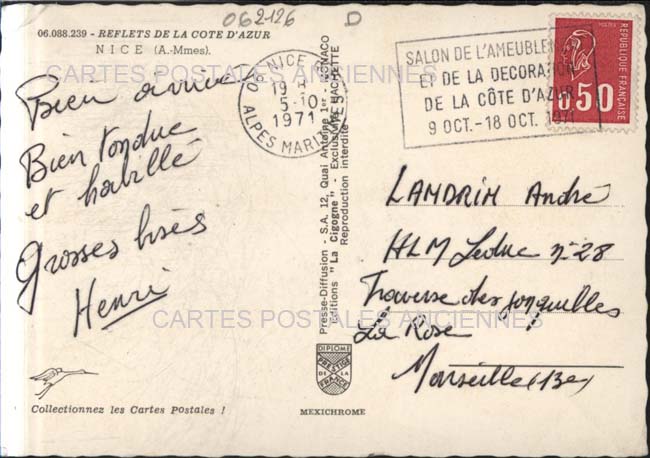 062126 D
06.088.239 - REFLETS DE LA COTE D'AZUR
NICE (A.-Mmes).
CARTES POSTALES ANCIENNES
Bien arrivé
Bien tondue
et habillé
Grosses bises
Henri
Collectionnez les Cartes Postales !
NICE
19 H
5-10
1971
ALPES MARITIMES
Presse-Diffusion - S.A. 12, Quai Antoine 1er - MONACO
Editions "La Cigogne" - Exclusivité HACHETTE
Reproduction interdite
DIPLOME
PRESTIGE
DE LA
FRANCE
MEXICHROME
SALON DE L'AMEUBLEMENT
ET DE LA DECORATION
DE LA CÔTE D'AZUR
9 OCT.-18 OCT. 1971
POSTES
REPUBLIQUE FRANÇAISE
0,50
LANDRIN André
HLM Leduc n° 28
Traverse des jonquilles
La Rose
Marseille (13e)
CARTES POSTALES ANCIENNES